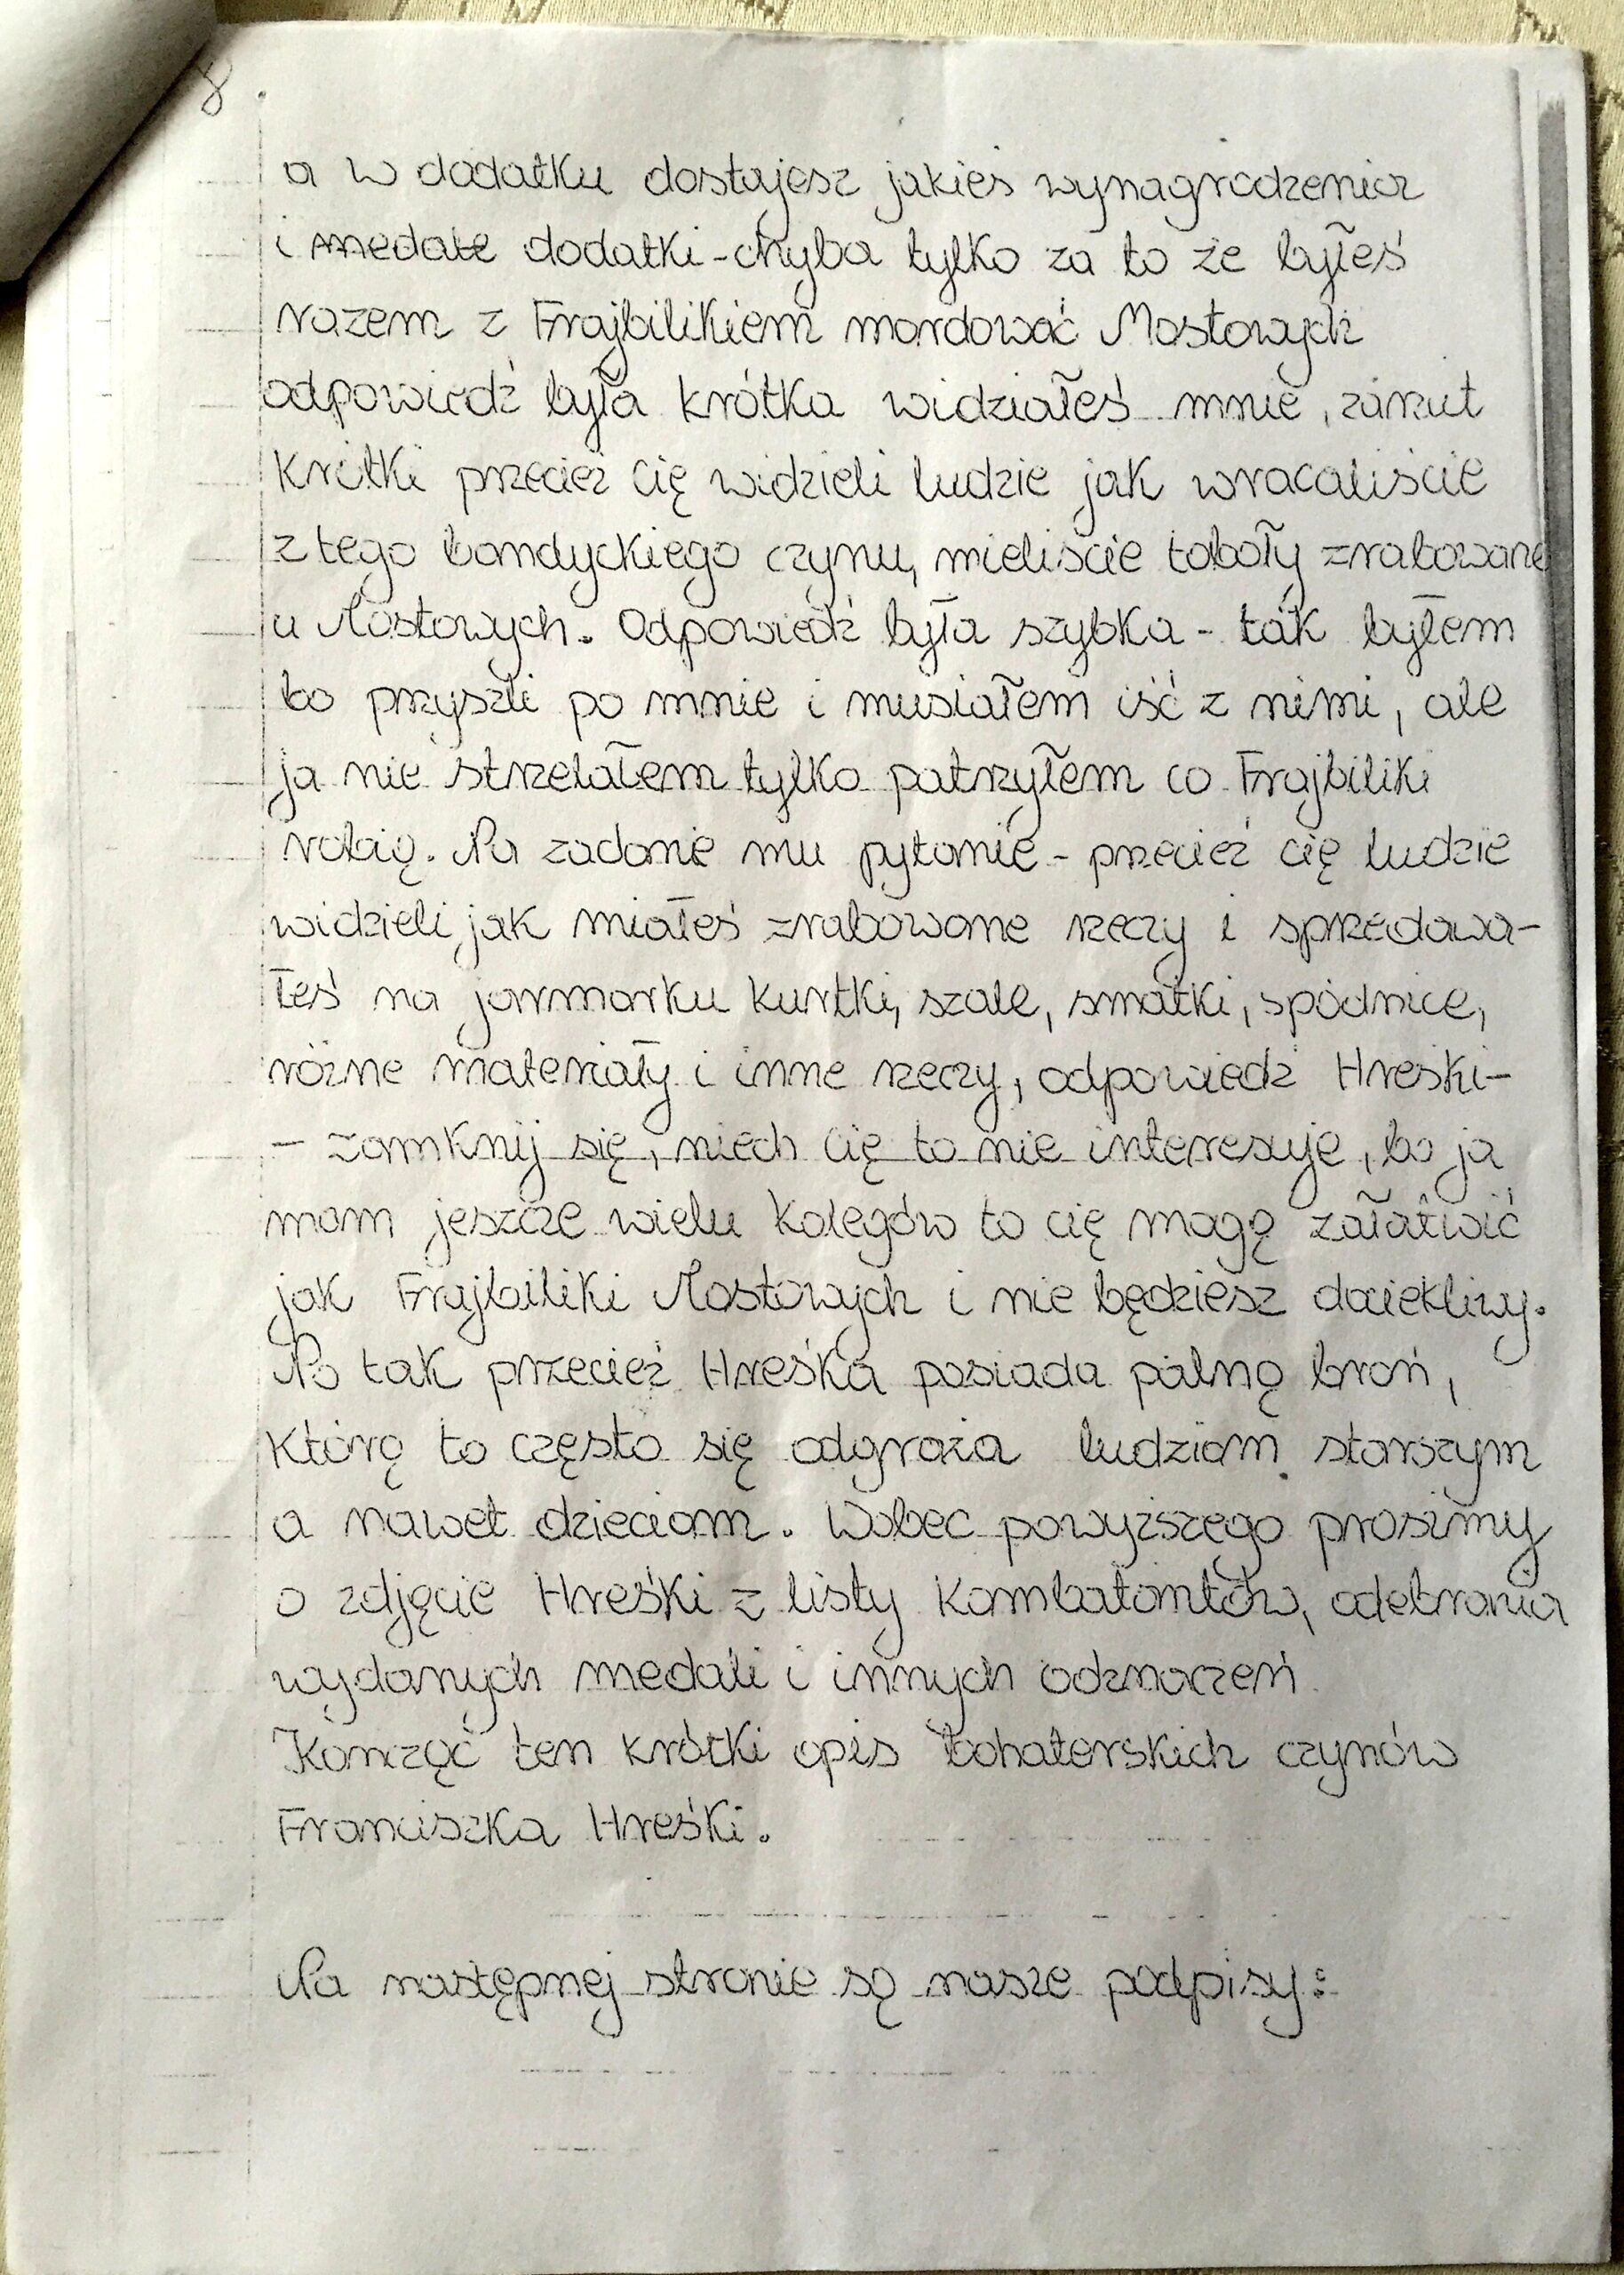 8.
a w dodatku dostajesz jakieś wynagrodzenia
i medale dodatki - chyba tylko za to że byłeś
razem z Frajbilikiem mordować Mostowych
odpowiedź była krótka widziałeś mnie, zarzut
krótki przecież cię widzieli ludzie jak wracaliście
z tego bandyckiego czynu, mieliście toboły zrabowane
u Mostowych. Odpowiedź była szybka - tak byłem
bo przyszli po mnie i musiałem iść z nimi, ale
ja nie strzelałem tylko patrzyłem co Frajbiliki
robią. Na zadanie mu pytanie - przecież cię ludzie
widzieli jak miałeś zrabowane rzeczy i sprzedawa-
łeś na jarmarku kurtki, szale, smatki, spódnice,
różne materiały i inne rzeczy, odpowiedź Hreśki-
- zamknij się, niech cię to nie interesuje, bo ja
mam jeszcze wielu kolegów to cię mogę załatwić
jak Frajbiliki Mostowych i nie będziesz dociekliwy.
No tak przecież Hreśka posiada palną broń,
którą to często się odgraża ludziom starszym
a nawet dzieciom. Wobec powyższego prosimy
o zdjęcie Hreśki z listy Kombatantów, odebrania
wydanych medali i innych odznaczeń
Kończąc ten krótki opis bohaterskich czynów
Franciszka Hreśki.
Na następnej stronie są nasze podpisy: